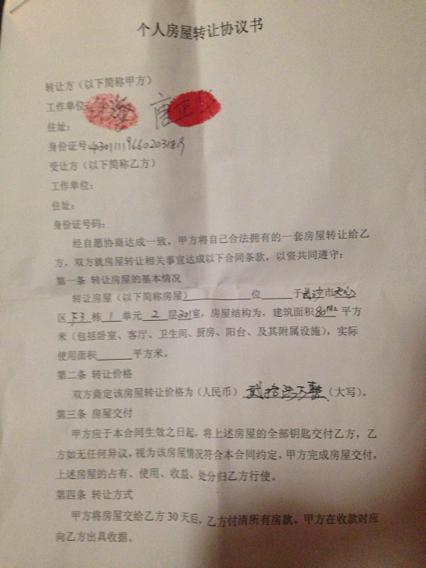 个人房屋转让协议书
转让方（以下简称甲方）
工作单位：
住址：
身份证号
受让方（以下简称乙方）
工作单位：
住址：
身份证号码：
经自愿协商达成一致，甲方将自己合法拥有的一套房屋转让给乙
方，双方就房屋转让相关事宜达成以下合同条款，以资共同遵守：
第一条 转让房屋的基本情况
转让房屋（以下简称房屋） 位 于长沙市
区 栋 1 单元 2 层201室，房屋结构为，建筑面积80M2平方
米（包括卧室、客厅、卫生间、厨房、阳台、及其附属设施），实际
使用面积 平方米。
第二条 转让价格
双方商定该房屋转让价格为（人民币） （大写）。
第三条 房屋交付
甲方应于本合同生效之日起，将上述房屋的全部钥匙交付乙方，乙
方如无任何异议，视为该房屋情况符合本合同约定，甲方完成房屋交付，
上述房屋的占有、使用、收益、处分归乙方行使。
第四条 转让方式
甲方将房屋交给乙方30天后，乙方付清所有房款。甲方在收款时应
向乙方出具收据。